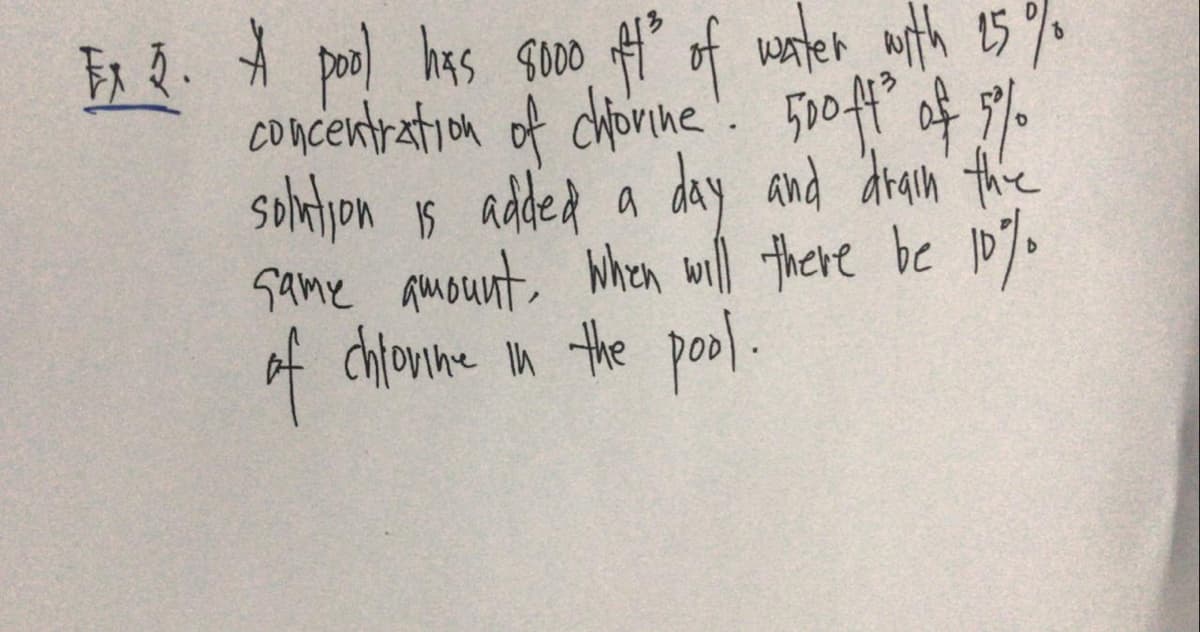 Ex 2. A pool has 8000 ft³ of water with 25%
concentration of chlorine. 500 ft³ of 5%
solution is added a day and drain the
same amount. When will there be 10%
of chlorine in the pool.